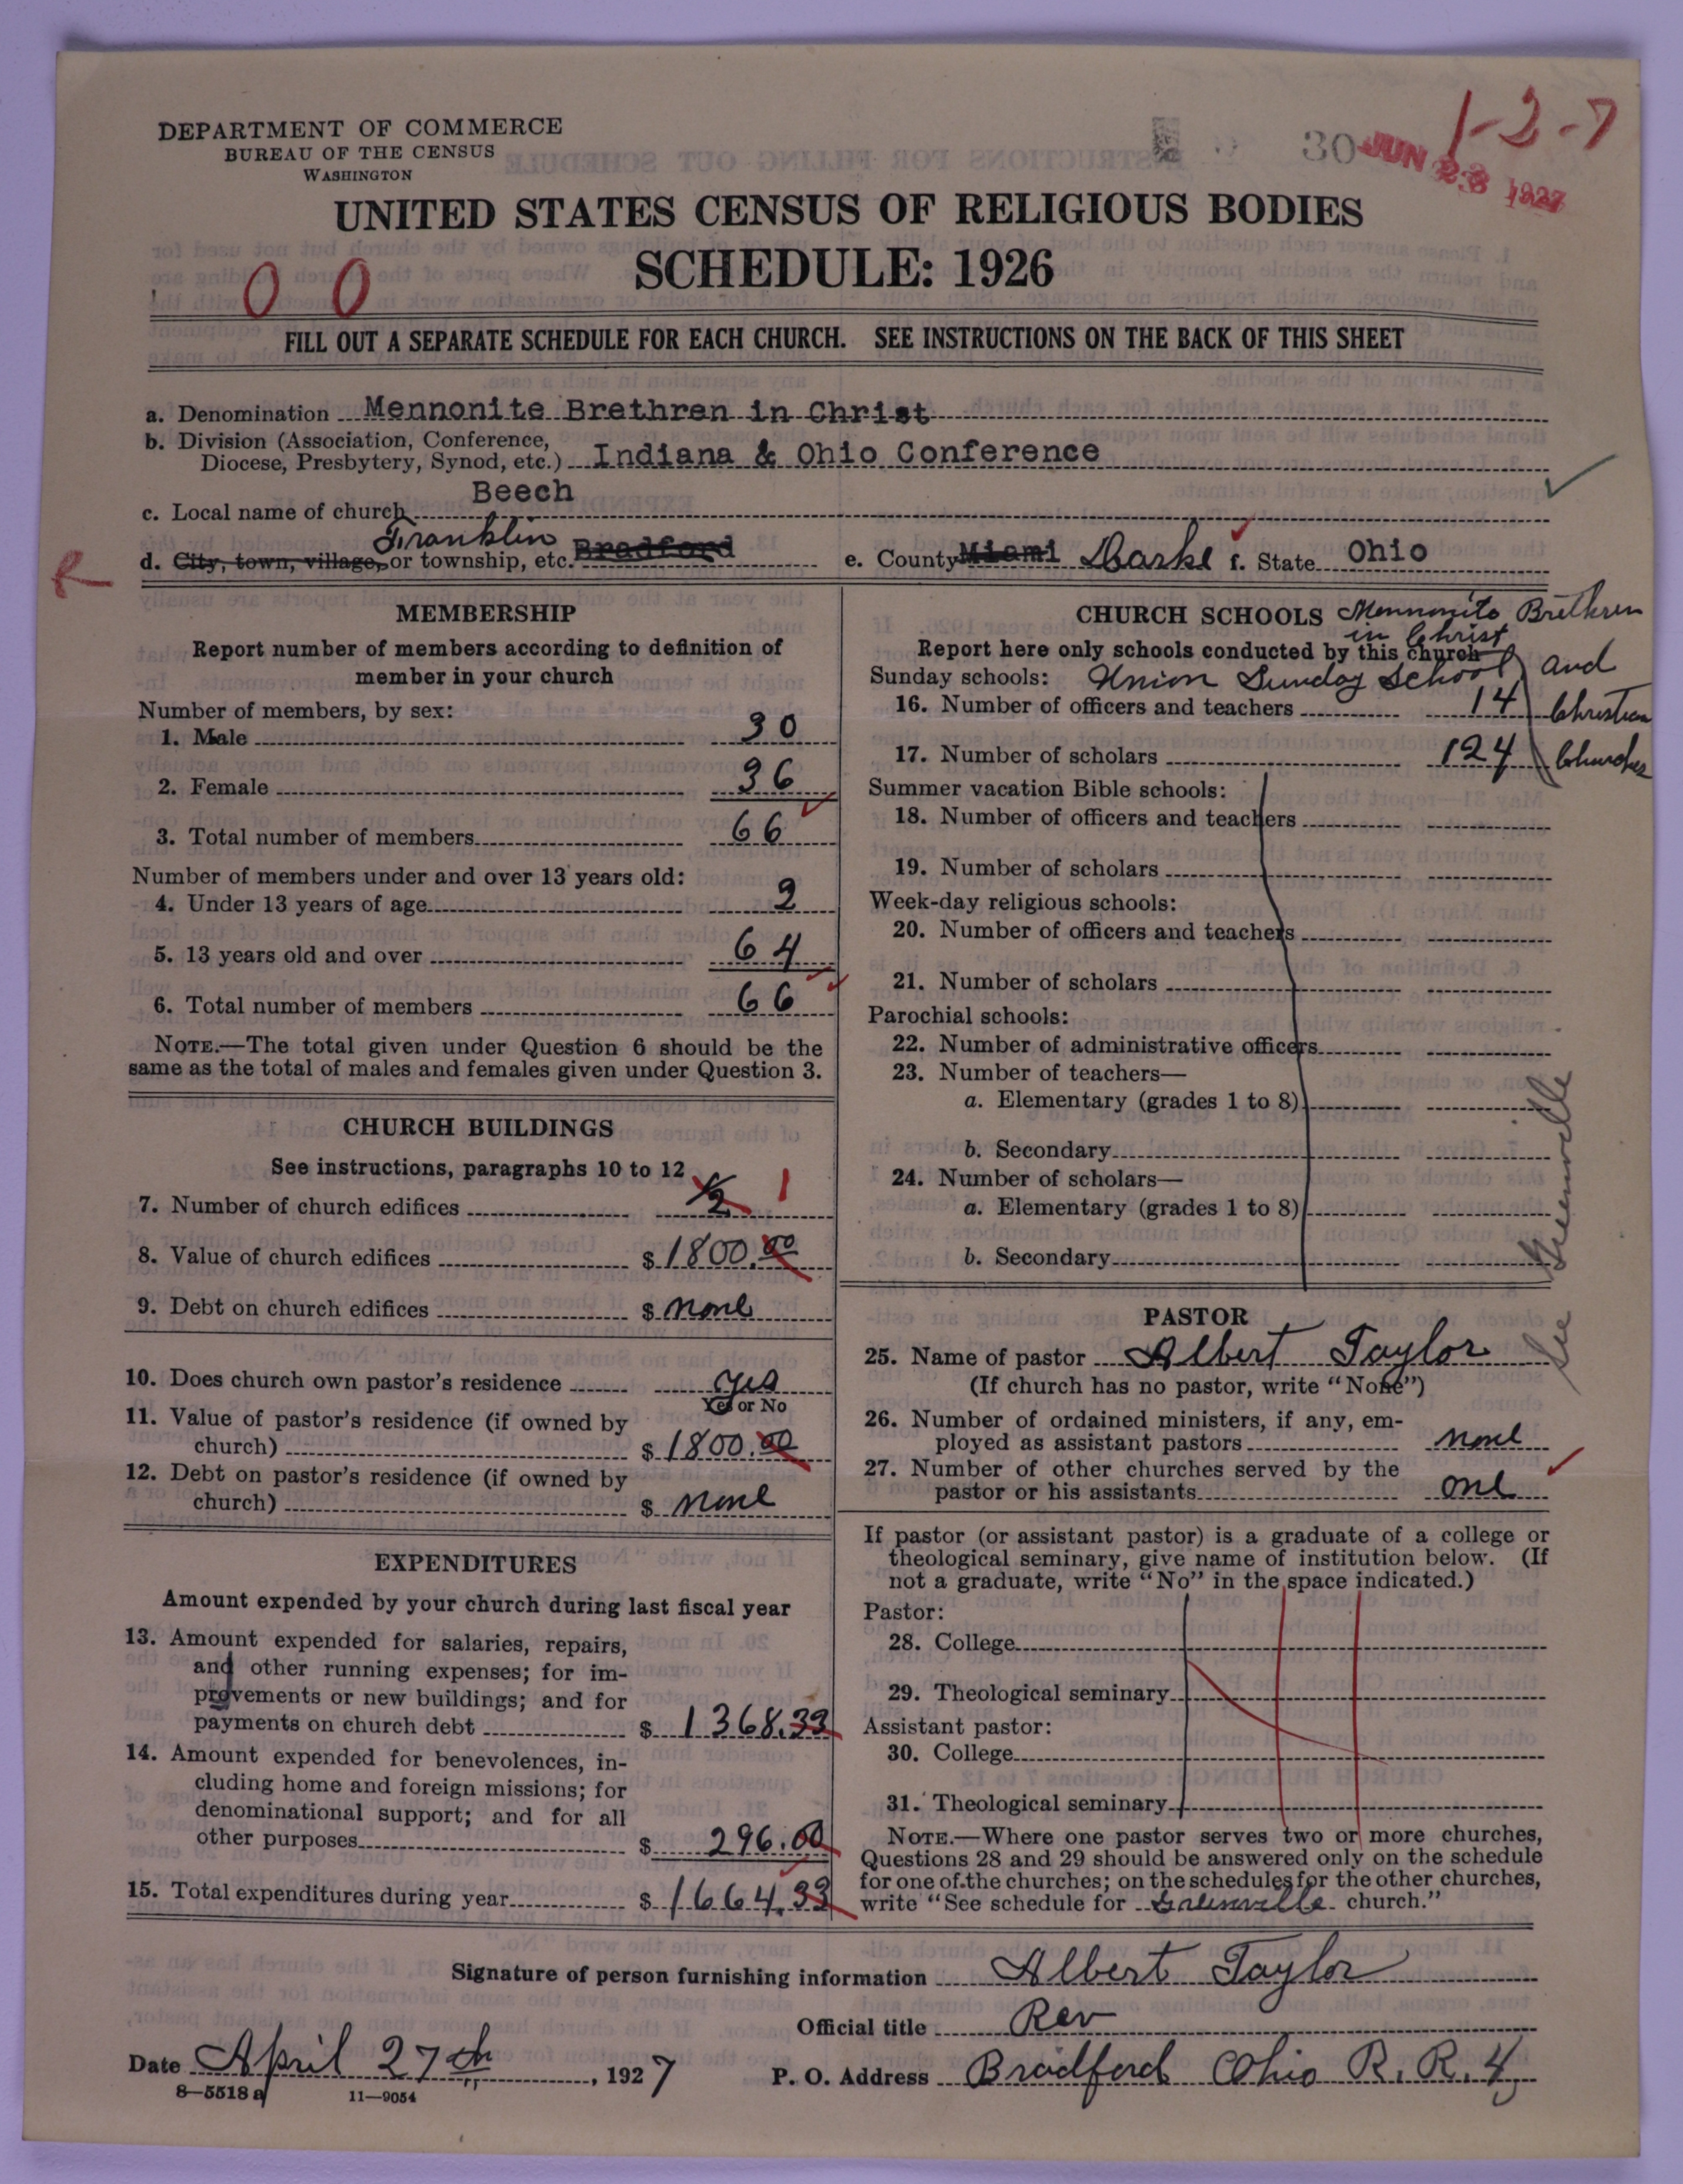 DEPARTMENT OF COMMERCE
BUREAU OF THE CENSUS
WASHINGTON
30
JUN 23 1927
1-2-7
UNITED STATES CENSUS OF RELIGIOUS BODIES
SCHEDULE: 1926
0 0
FILL OUT A SEPARATE SCHEDULE FOR EACH CHURCH. SEE INSTRUCTIONS ON THE BACK OF THIS SHEET
a. Denomination Mennonite Brethren in Christ
b. Division (Association, Conference,
Diocese, Presbytery, Synod, etc.) Indiana & Ohio Conference
Beech
c. Local name of church
Franklin
d. City, town, village, or township, etc. Bradford e. County Miami Darke f. State Ohio
MEMBERSHIP
Report number of members according to definition of
member in your church
Number of members, by sex:
1. Male 30
2. Female 36
3. Total number of members 66
Number of members under and over 13 years old:
4. Under 13 years of age 2
5. 13 years old and over 64
6. Total number of members 66
NOTE.—The total given under Question 6 should be the
same as the total of males and females given under Question 3.
CHURCH BUILDINGS
See instructions, paragraphs 10 to 12
7. Number of church edifices 1/2 1
8. Value of church edifices $ 1800.00
9. Debt on church edifices $ none
10. Does church own pastor's residence yes
Yes or No
11. Value of pastor's residence (if owned by
church) $ 1800.00
12. Debt on pastor's residence (if owned by
church) $ none
EXPENDITURES
Amount expended by your church during last fiscal year
13. Amount expended for salaries, repairs,
and other running expenses; for im-
provements or new buildings; and for
payments on church debt $ 1368.33
14. Amount expended for benevolences, in-
cluding home and foreign missions; for
denominational support; and for all
other purposes $ 296.00
15. Total expenditures during year $ 1664.33
CHURCH SCHOOLS Mennonite Brethren
in Christ
Report here only schools conducted by this church
and
Sunday schools: Union Sunday School
16. Number of officers and teachers 14 Christian
17. Number of scholars 124 Churches
Summer vacation Bible schools:
18. Number of officers and teachers
19. Number of scholars
Week-day religious schools:
20. Number of officers and teachers
21. Number of scholars
Parochial schools:
22. Number of administrative officers
23. Number of teachers—
a. Elementary (grades 1 to 8)
b. Secondary
24. Number of scholars—
a. Elementary (grades 1 to 8)
b. Secondary
See Greenville
PASTOR
25. Name of pastor Albert Taylor
(If church has no pastor, write "None")
26. Number of ordained ministers, if any, em-
ployed as assistant pastors none
27. Number of other churches served by the
pastor or his assistants one
If pastor (or assistant pastor) is a graduate of a college or
theological seminary, give name of institution below. (If
not a graduate, write "No" in the space indicated.)
Pastor:
28. College
29. Theological seminary
Assistant pastor:
30. College
31. Theological seminary
NOTE.—Where one pastor serves two or more churches,
Questions 28 and 29 should be answered only on the schedule
for one of the churches; on the schedules for the other churches,
write "See schedule for Greenville church."
Signature of person furnishing information Albert Taylor
Official title Rev
Date April 27th, 1927 P. O. Address Bradford Ohio R. R. 4
8—5518 a 11—9054